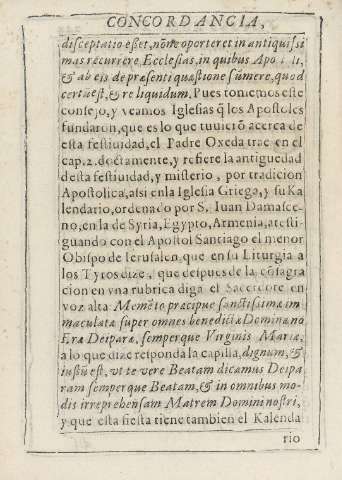 CONCORDANCIA,
disceptatio esset, nõne oporteret in antiquissi
mas recurrere Ecclesias, in quibus Apo
& ab eis de præsenti quæstione sumere, quod
certũ est, & re liquidum. Pues tomemos este
consejo, y veamos Iglesias q̃ los Apostoles
fundaron, que es lo que tuuierõ acerca de
esta festiuidad, el Padre Oxeda trae en el
cap. 2. doctamente, y refiere la antiguedad
desta festiuidad, y misterio, por tradicion
Apostolica, assi en la Iglesia Griega, y su Ka
lendario, ordenado por S. Iuan Damasce-
no, en la de Syria, Egypto, Armenia, atesti-
guando con el Apostol Santiago el menor
Obispo de Ierusalen, que en su Liturgia a
los Tyros dize, que despues de la cõsagra
cion en vna rubrica diga el Sacerdote en
voz alta Memẽto præcipue sanctissimæ im
maculatæ super omnes benedictæ Dominæ no
stræ Deiparæ, semperque Virginis Mariæ,
a lo que dize responda la capilla, dignum, &
iustũ est, vt te vere Beatam dicamus Deipa
ram semperque Beatam, & in omnibus mo-
dis irreprehensam Matrem Domini nostri,
y que esta fiesta tiene tambien el Kalenda
rio